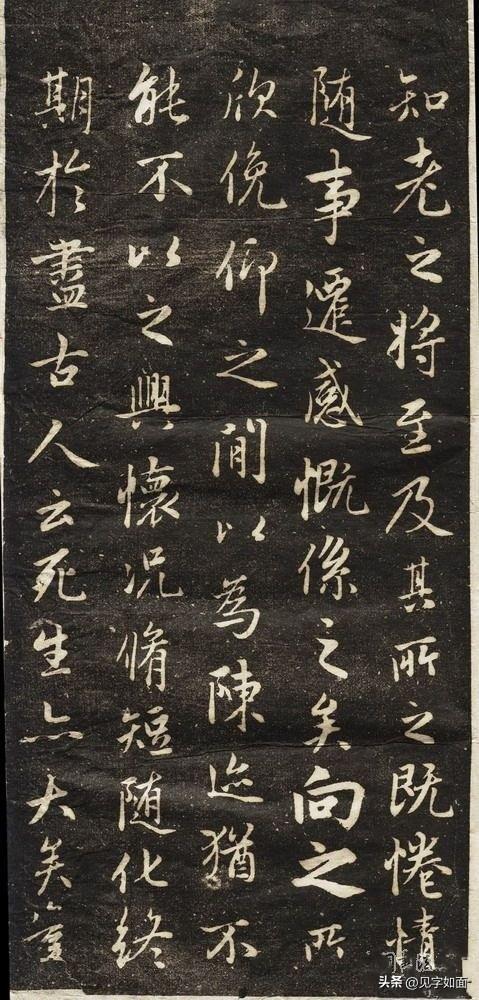 知老之将至及其所之既惓情
随事遷感慨係之矣向之所
欣俛仰之閒以為陳迹猶不
能不以之興懷况脩短随化終
期於盡古人云死生亦大矣豈
头条 @见字如面